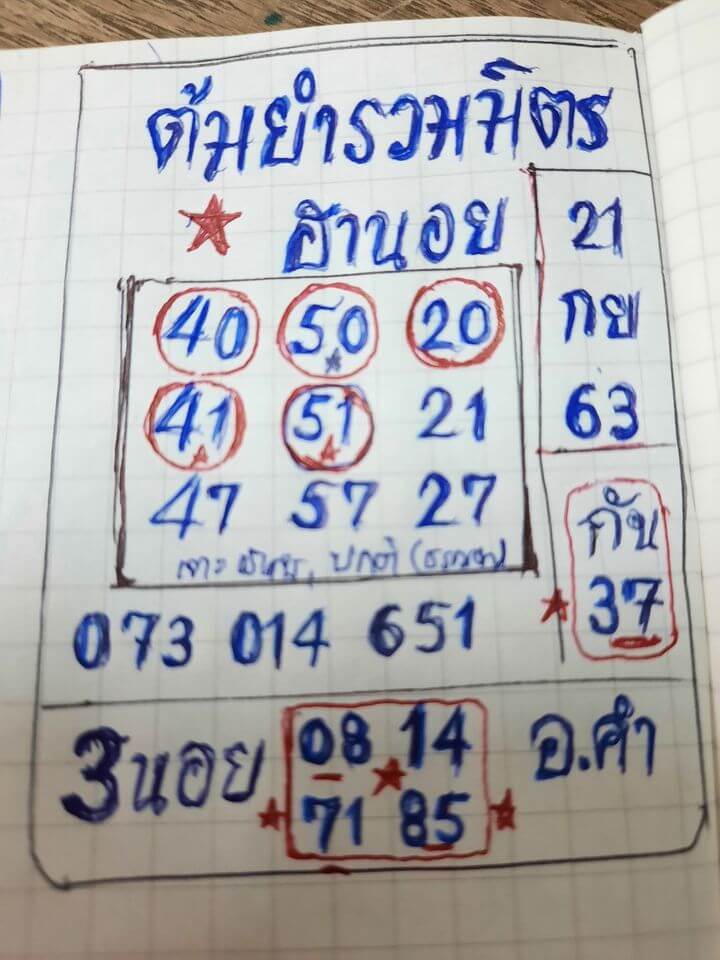 ต้มยำรวมมิตร
ฮานอย
21
กย
63
40 50 20
41 51 21
47 57 27
ปกติ
กัน
37
073 014 651
3นอย
08 14
71 85
อ.คำ